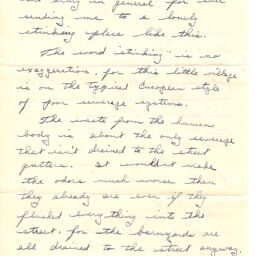 the army in general for ever
sending me to a lonely
stinking place like this.
The word "stinking" is no
exaggeration, for this little village
is on the typical European style
of poor sewerage systems.
The waste from the human
body is about the only sewerage
that isn't drained to the street
gutters. It wouldn't make
the odors much worse than
they already are even if they
flushed everything into the
street, for the barnyards are
all drained to the street anyway.